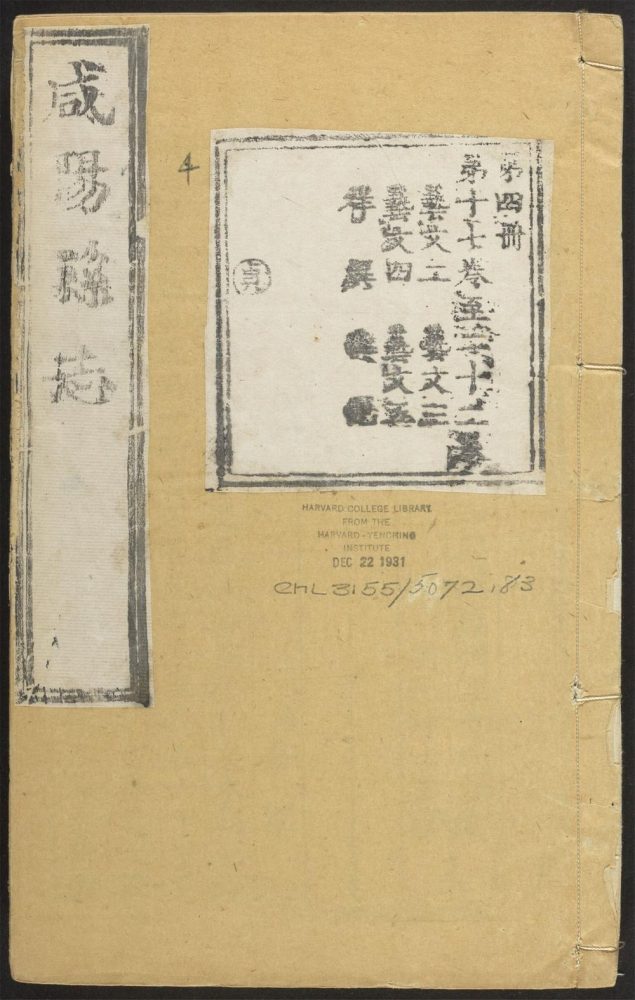 咸陽縣志
4
第四冊
第十七卷至
藝文二 藝文三
藝文四 藝文五
祥異
HARVARD COLLEGE LIBRARY
FROM THE
HARVARD-YENCHING
INSTITUTE
DEC 22 1931
ChL 3155/5072.83